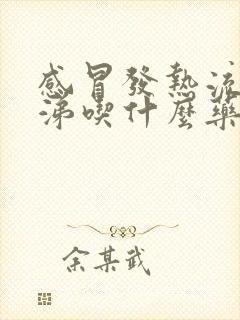 感冒發熱流
涕喫什麼藥
余某武